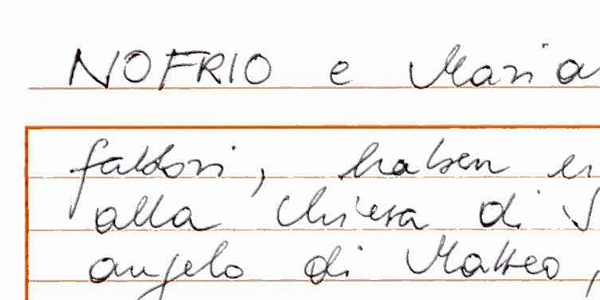 NOFRIO e Maria
fattori, haben
alla chiesa di S
angelo di Matteo,